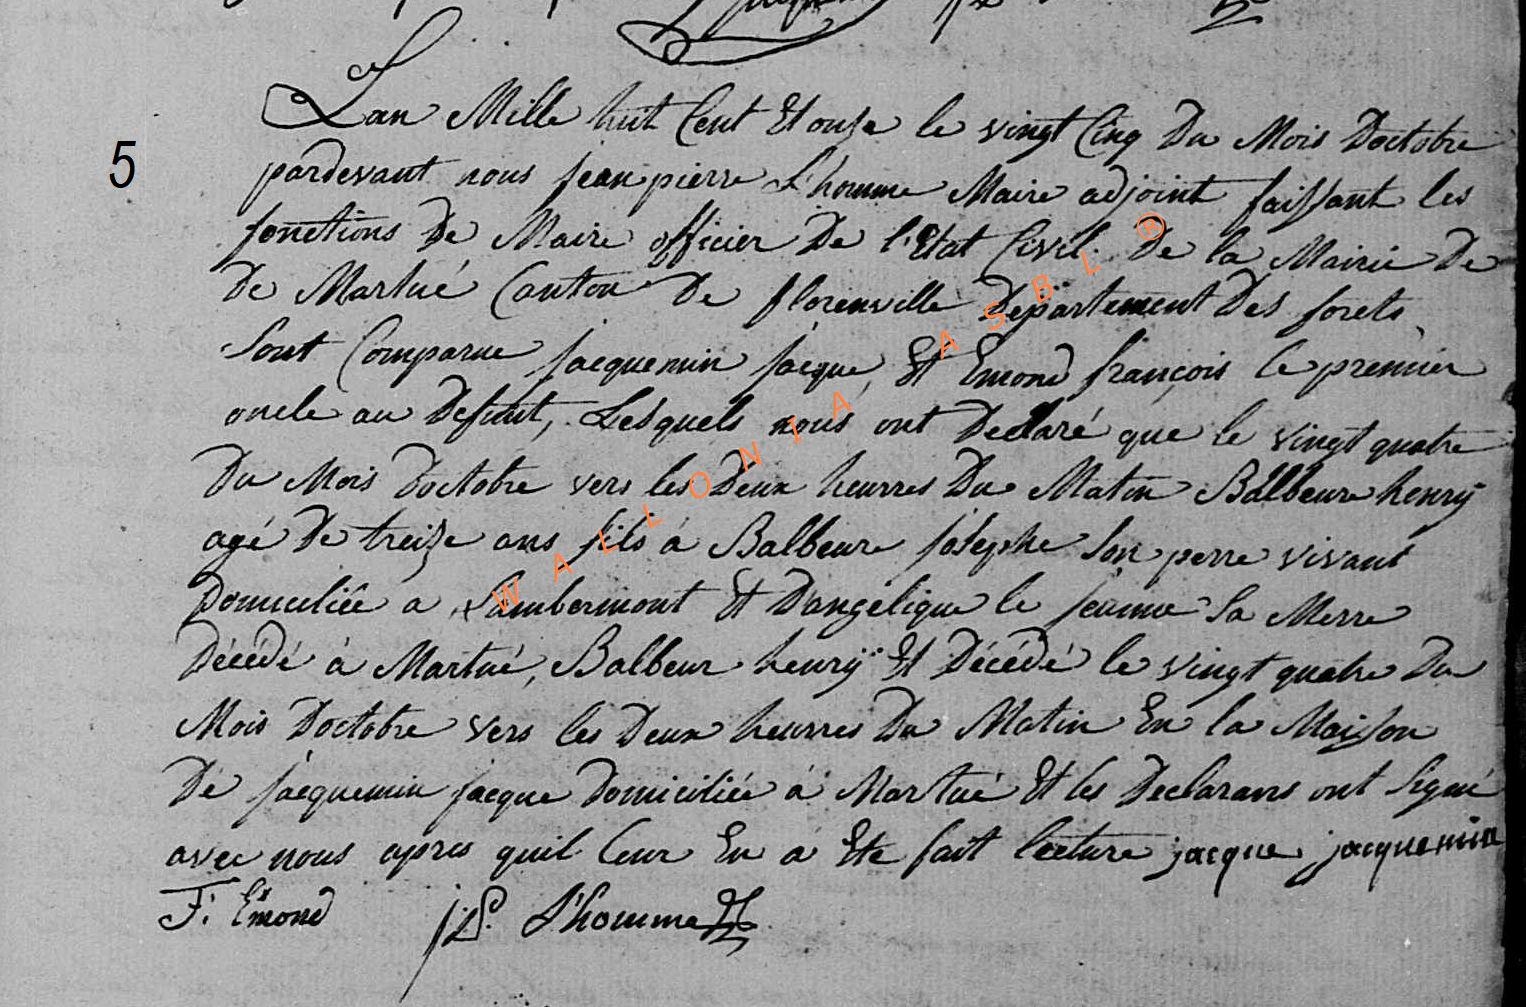 5
Lan Mille huit Cent Et onze le vingt Cinq Du Mois Doctobre
pardevant nous jean pierre L'homme Maire adjoint faissant les
fonctions De Maire officier De l'Etat Civil De la Mairie De
De Martué Canton De florenville Departement Des forets
Sont Comparue jacquemin jacque, Et Emond françois le premier
oncle au Defunt, Lesquels nous ont Declaré que le vingt quatre
Du Mois Doctobre vers les Deux heurres Du Matin Balbeure henrÿ
agé De treize ans fils á Balbeure josephe Son perre vivant
Domiciliée a Lambermont Et Dangelique le jeunne Sa Merre
Décédé à Martué, Balbeur henrÿ Et Décédé le vingt quatre Du
Mois Doctobre vers les Deux heurres Du Matin En la Maison
De jacquemin jacque Domiciliée á Martué Et les Declarans ont Signé
avec nous apres quil leur En a Ete fait lecture jacque jacquemin
F. Emond J.P. L'homme
WALLONIA ASBL ®